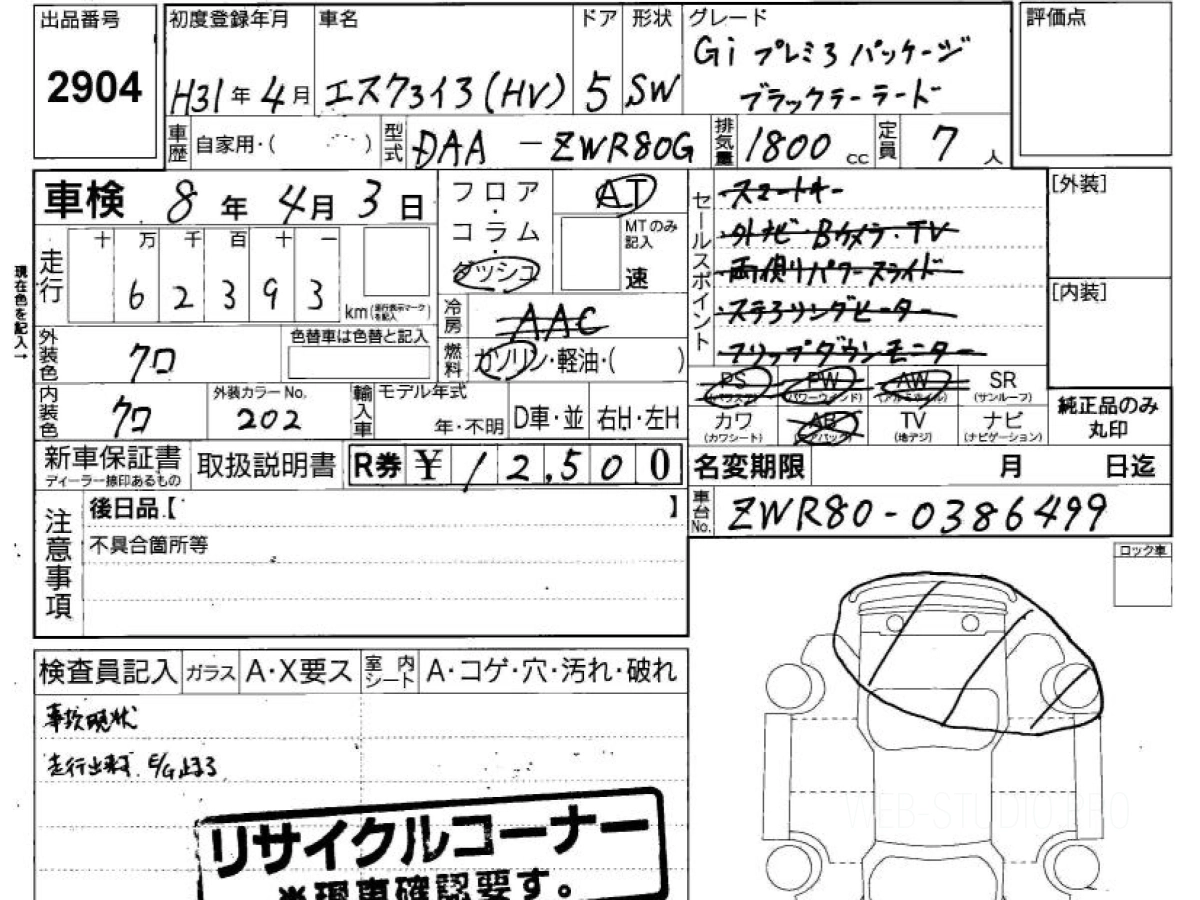 出品番号
2904
初度登録年月
H31年 4月
車名
エスクァイア(HV)
ドア
5
形状
SW
グレード
Gi プレミアパッケージ
ブラックテーラード
評価点
車歴
自家用・( )
型式
DAA - ZWR80G
排気量
1800 cc
定員
7 人
車検 8年 4月 3日
走行
十 万 千 百 十 一
6 2 3 9 3
km(走行表示マークを記入)
現在色を記入→
フロア・コラム・ダッシュ
AT
MTのみ記入
速
冷房
AAC
燃料
ガソリン・軽油・( )
セールスポイント
スマートキー
外ナビ・Bカメラ・TV
両側パワースライド
ステアリングヒーター
フリップダウンモニター
[外装]
[内装]
外装色
クロ
色替車は色替と記入
内装色
クロ
外装カラーNo.
202
輸入車
モデル年式
年・不明
D車・並
右H・左H
PS
(パワステ)
PW
(パワーウィンド)
AW
(アルミホイル)
SR
(サンルーフ)
カワ
(カワシート)
AB
(エアバッグ)
TV
(地デジ)
ナビ
(ナビゲーション)
純正品のみ
丸印
新車保証書
ディーラー捺印あるもの
取扱説明書
R券 ¥12,500
名変期限 月 日迄
車台No.
ZWR80-0386499
注意事項
後日品【 】
不具合箇所等
ロック車
検査員記入
ガラス
A・X要ス
室内シート
A・コゲ・穴・汚れ・破れ
事故現状
走行出来ず E/G止まる
リサイクルコーナー
※現車確認要す。
WEB-STUDIO.PRO